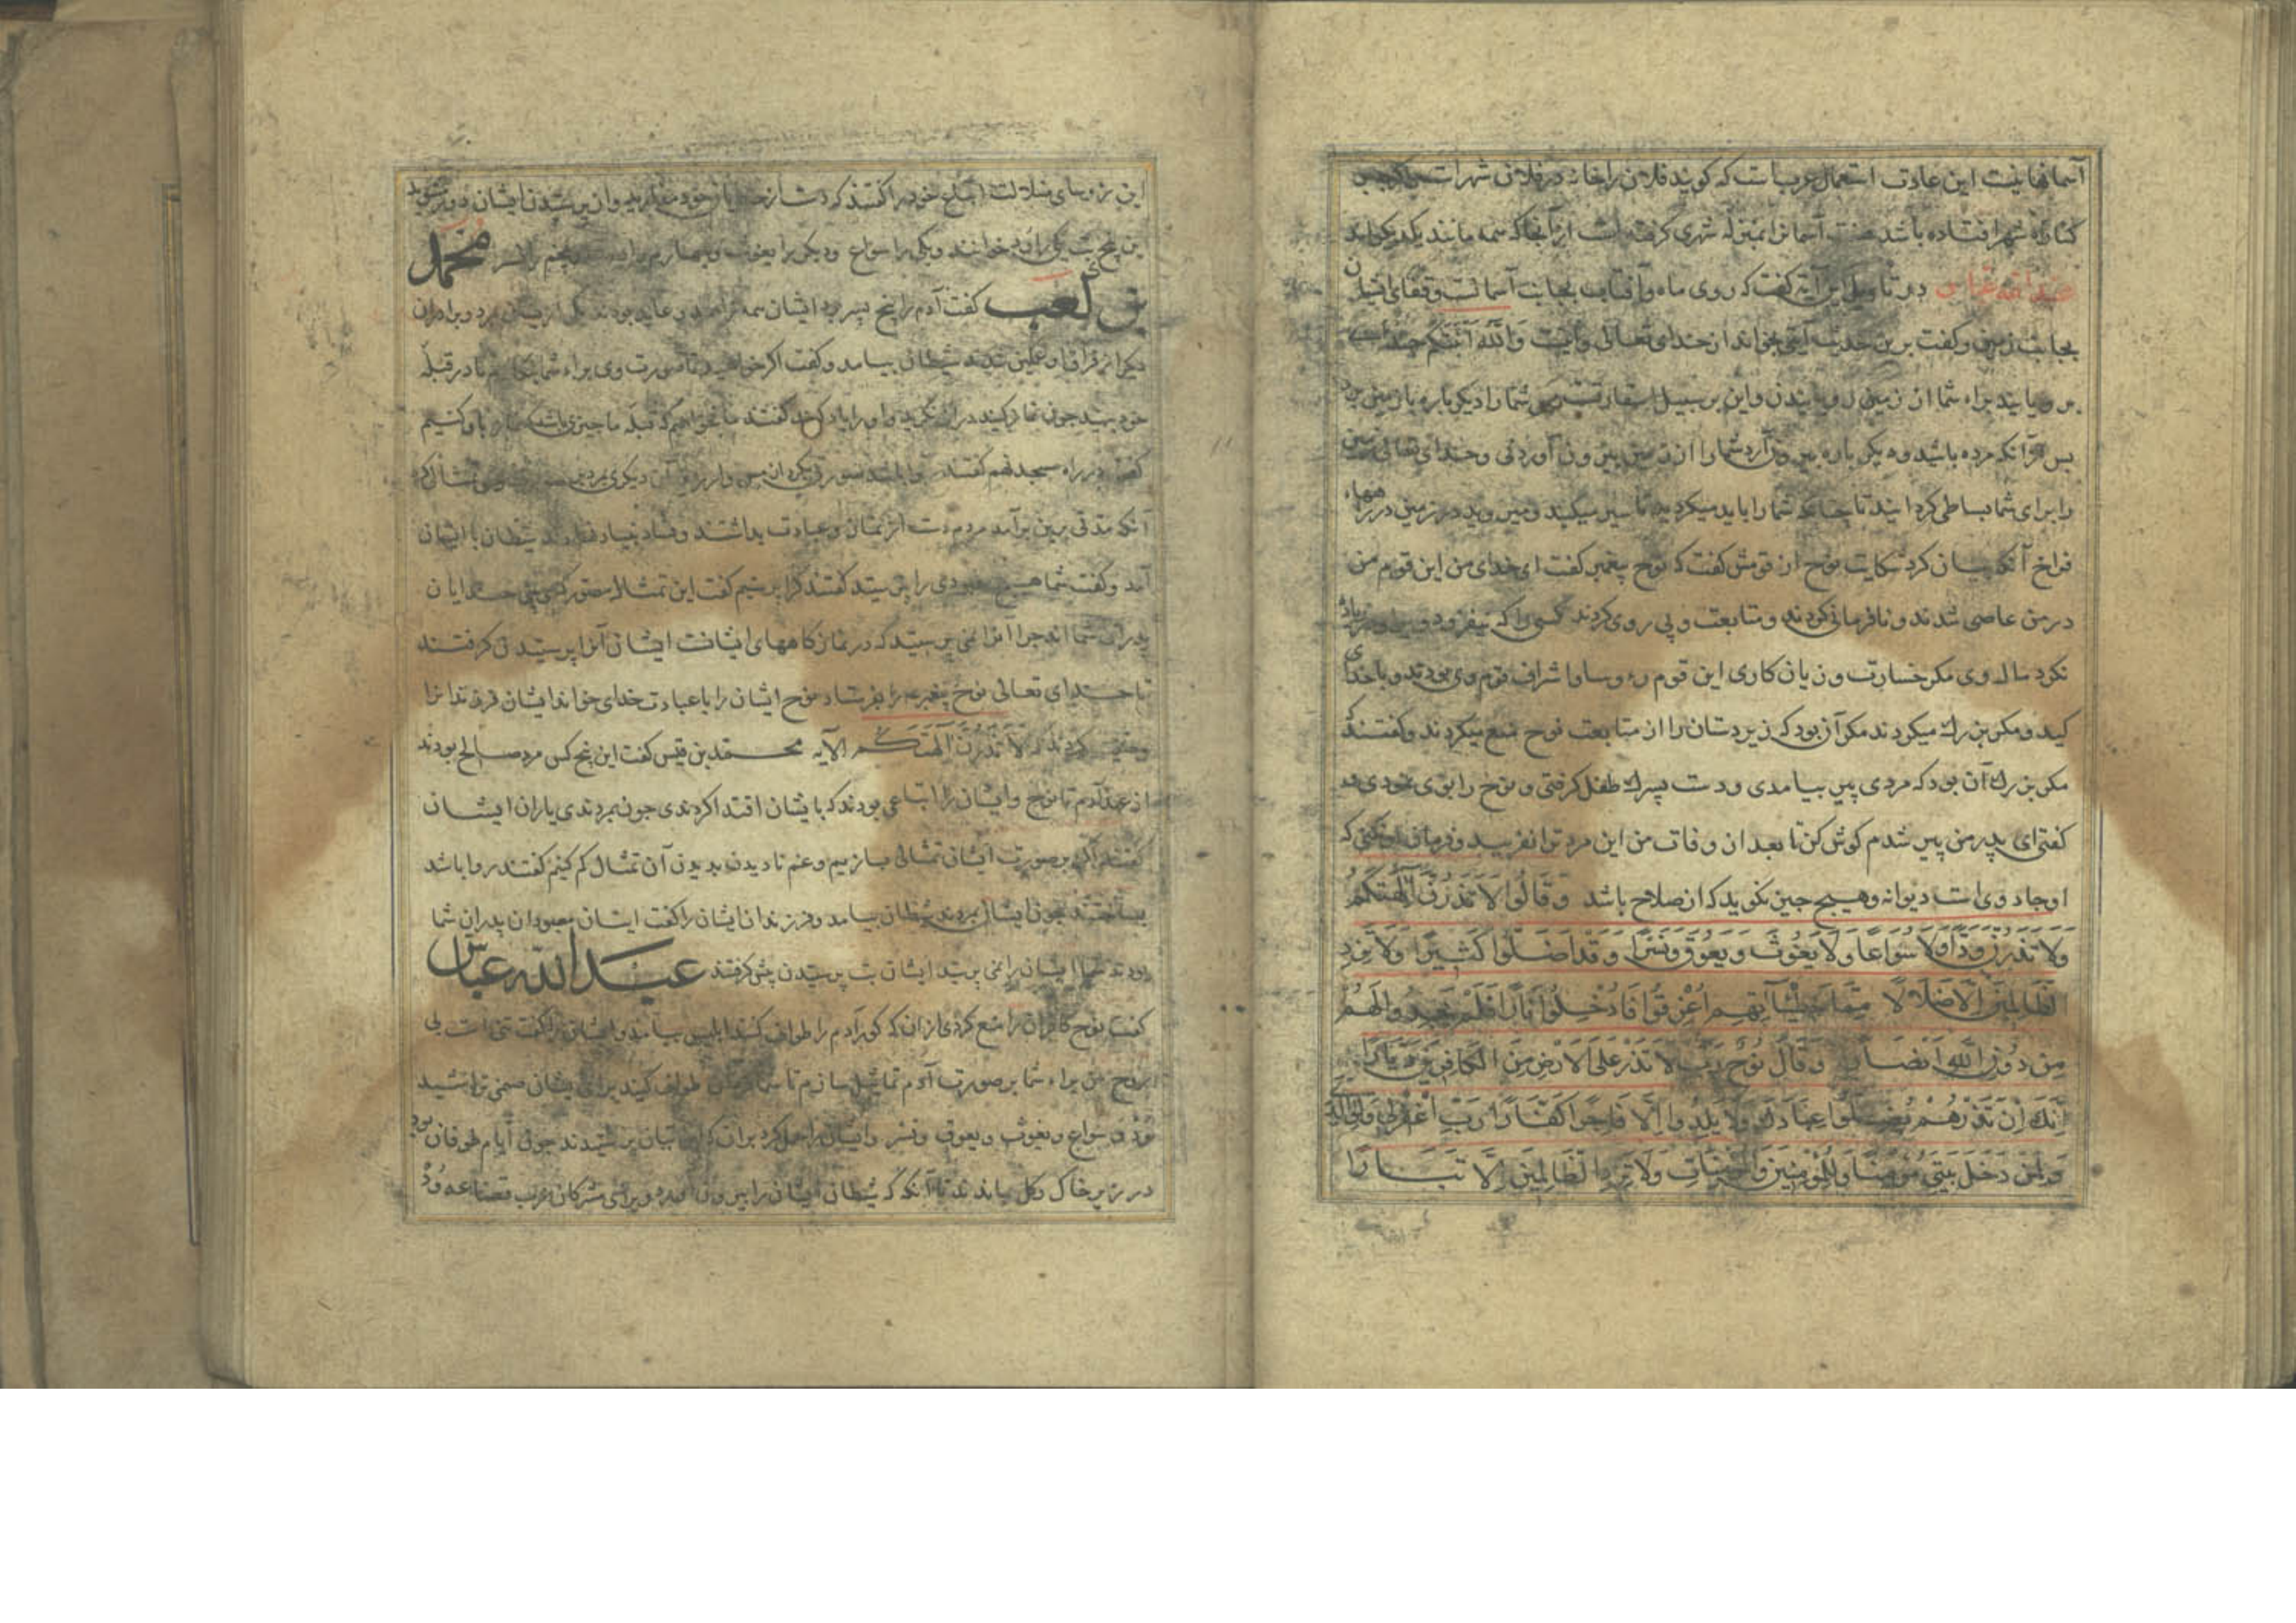 آسمانهاینت این عادت استعمال عربیات که کویند فلان را خانه در فلان شهرات
کناره شهر افتاده باشد آسمانرا بمنزله شهری کرفته است از آنجا که سمه مانند یکدیکراند
عبدالله عباس در تاویل این آیه کفت که روی ماه و آفتاب بجانب آسمانت و قفای ایشان
بجانب زمین و کفت برین حدیث آیتی بخواند از خدای تعالی وآیت وَاللّه اَنبَتَکُم
برویانید براء شما از زمین رویانیدن و این بر سبیل استعارتست شما را دیکر باره باز زمین برد
بس ازآنکه مرده باشید و دیکر باره بیرون آرد شما را از زمین بیرون آوردنی و خدای تعالی زمین
را برای شما بساطی کردانید تا چنانکه شما را باید میکردید تا سیر میکنید و میروید در زمین در راههاء
فراخ آنکه بیان کرد شکایت نوح از قومش کفت که نوح پیغمبر کفت ای خدای من این قوم من
در من عاصی شدند و نافرمانی کردند و متابعت و پی روی کردند کسی را که نیفزود
نکرد مال وی مکر خسارت و زیان کاری این قوم رؤوسا و اشراف قوم وی بودند و با خدای
کید و مکر بزرك میکردند مکر آن بود که زیردستان را از متابعت نوح منع میکردند و کفتند که
مکر بزرك آن بود که مردی پیر بیامدی و دست پسرك طفل کرفتی و نوح را بوی نمودی
کفتی ای پدر من پیر شدم کوش کن تا بعد از وفات من این مرد ترا نفریبد و فرمان او نکنی که
او جادوی است دیوانه و هیچ چیز نکوید که از صلاح باشد وَقَالُوا لَا تَذَرُنَّ آلِهَتَکُمْ
وَلَا تَذَرُنَّ وَدًّا وَلَا سُوَاعًا وَلَا یَغُوثَ وَیَعُوقَ وَنَسْرًا وَقَدْ اَضَلُّوا کَثِیرًا وَلَا تَزِدِ
لظَّالِمِینَ اِلَّا ضَلَالًا مِمَّا خَطِیٓآتِهِم اُغْرِقُوا فَاُدْخِلُوا نَارًا فَلَمْ یَجِدُوا لَهُمْ
مِن دُونِ اللّهِ اَنصَارًا وَقَالَ نُوحٌ رَبِّ لَا تَذَرْ عَلَی الْاَرْضِ مِنَ الْکَافِرِینَ دَیَّارًا
اِنَّكَ اِنْ تَذَرْهُمْ یُضِلُّوا عِبَادَكَ وَلَا یَلِدُوا اِلَّا فَاجِرًا کَفَّارًا رَبِّ اغْفِرْلِی وَلِوَالِدَیَّ
وَلِمَنْ دَخَلَ بَیْتِیَ مُؤْمِنًا وَلِلْمُؤْمِنِینَ وَالْمُؤْمِنَاتِ وَلَا تَزِدِ الظَّالِمِینَ اِلَّا تَبَارًا
این رؤسای ضلالت اتباع خود را کفتند که دست از خدایان خود مدارید و از پرستیدن ایشان دور مشوید
این پنج بت یکی را ود خوانند و یکی را سواع و دیکری را یغوث و چهارم را و پنجم را نسر محمد
بن کعب کفت آدم را پنج پسر بود ایشان همه زاهد و عابد بودند یکی از ایشان بمرد و برادران
دیکر از فراق او غمکین شدند شیطان بیامد و کفت اکر خواهید تا صورت وی براء شما بنکارم تا در قبله
خود بنهید چون نماز کنید دران نکرید و او را یاد کنید کفتند ما نخواهیم که قبله ما چیزی باشد که نماز با او کنیم
کفت در راه مسجد نهم کفتند روا باشد صورتی بکرد از مس و ارزیز آن دیکری بمرد
آنکه مدتی برین برآمد مردم دست از نماز و عبادت بداشتند و فساد بنیاد نهادند شیطان با ایشان
آمد و کفت شما هیچ معبودی را پرستید کفتند کرا پرستیم کفت این تمثال مصور که می بینی خدایان
پدران شما اند چرا آنرا نمی پرستید که در نمازکاههای ایشانت ایشان آنرا پرستیدن کرفتند
تا خدای تعالی نوح پیغمبر را بفرستاد نوح ایشان را با عبادت خدای خواند ایشان فرزندانرا
وصیت کردند که لَا تَذَرُنَّ آلِهَتَکُمْ الآیه محمد بن قیس کفت این پنج کس مرد صالح بودند
از عهد آدم تا نوح و ایشان را اتباعی بودند که با یشان اقتدا کردندی چون بمردندی یاران ایشان
کفتند اکر بر صورت ایشان تمثالی بسازیم و غم نادیدن بدیدن آن تمثال کم کنیم کفتند روا باشد
بساختند چون ایشان بمردند شیطان بیامد و فرزندان ایشان را کفت ایشان معبودان پدران شما
بودند شما ایشان را نمی پرستید ایشان بت پرستیدن پیش کرفتند عبدالله عباس
کفت نوح کافران را منع کردی از آن که کور آدم را طواف کنند ابلیس بیامد و ایشان را کفت تنی است بی
روح من براء شما بر صورت آدم تماثیل سازم تا شما کرد آن طواف کنید برای ایشان صنمی تراشید
وَدّ و سواع و یغوث و یعوق و نسر و ایشان را حمل کرد بران که این بتان پرستیدند چون ایام طوفان بود
در زیر خاك و کل بماندند تا آنکه که شیطان ایشان را بیرون آورد و برای مشرکان عرب قضاعه وَدّ